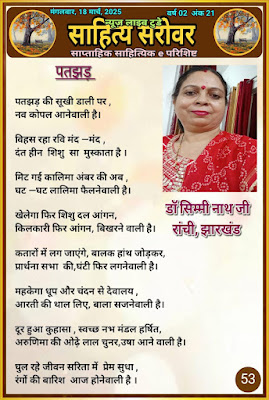 मंगलवार, 18 मार्च, 2025
न्यूज लाइव टुडे
वर्ष 02 अंक 21
साहित्य सरोवर
साप्ताहिक साहित्यिक e परिशिष्ट
पतझड़
पतझड़ की सूखी डाली पर ,
नव कोपल आनेवाली है।
विहस रहा रवि मंद –मंद ,
दंत हीन शिशु सा मुस्काता है ।
मिट गई कालिमा अंबर की अब ,
घट –घट लालिमा फैलनेवाली है।
खेलेगा फिर शिशु दल आंगन,
किलकारी फिर आंगन, बिखरने वाली है।
कतारों में लग जाएंगे, बालक हांथ जोड़कर,
प्रार्थना सभा की,घंटी फिर लगनेवाली है।
महकेगा धूप और चंदन से देवालय ,
आरती की थाल लिए, बाला सजनेवाली है।
दूर हुआ कुहासा , स्वच्छ नभ मंडल हर्षित,
अरुणिमा की ओढ़े लाल चुनर,उषा आने वाली है।
घुल रहे जीवन सरिता में प्रेम सुधा ,
रंगों की बारिश आज होनेवाली है ।
डॉ सिम्मी नाथ जी
रांची, झारखंड
53